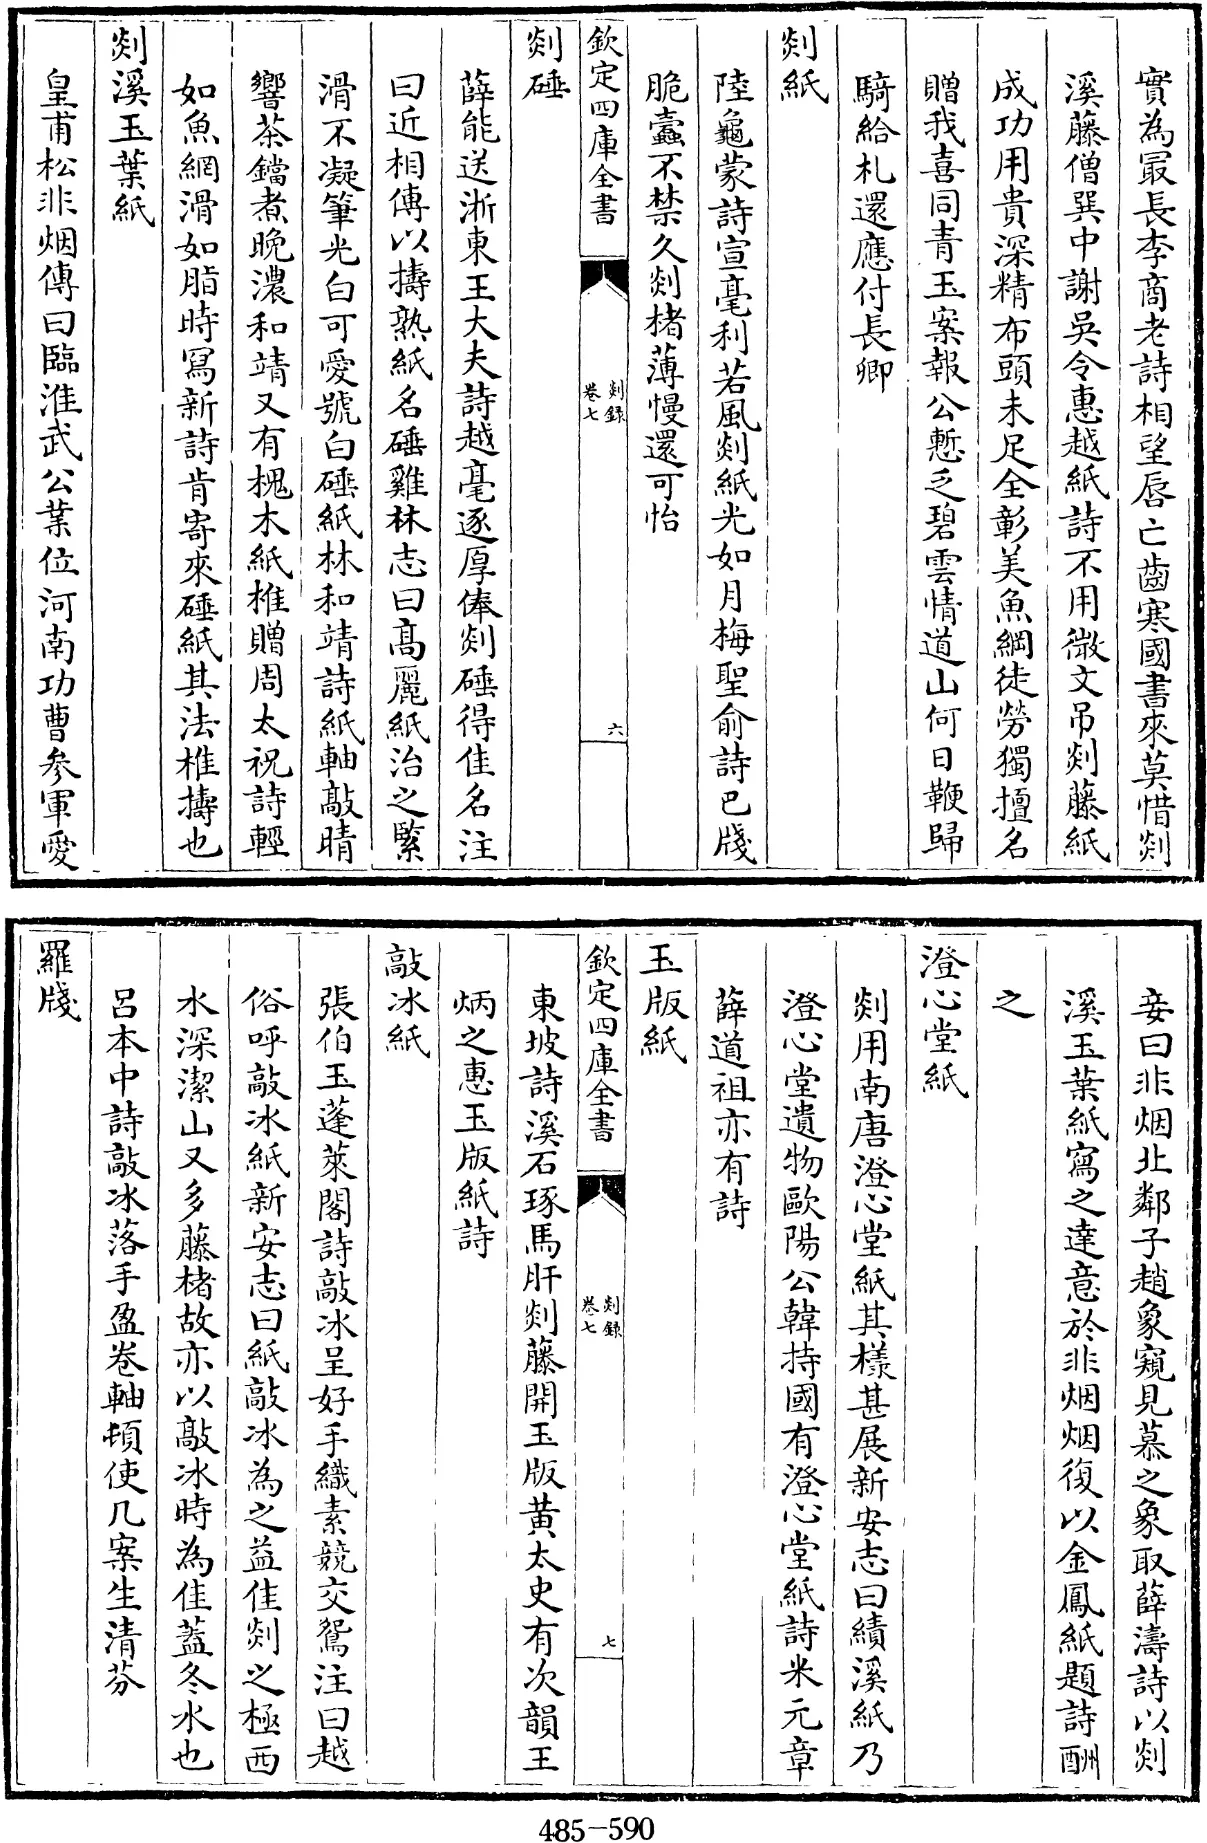 實為冣長李商老詩相望唇亡齒寒國書來莫惜剡
溪藤僧巽中謝吳令惠越紙詩不用微文吊剡藤紙
成功用貴深精布頭未足全彰美魚網徒勞獨擅名
贈我喜同青玉案報公慙乏碧雲情道山何日鞭歸
騎給札還應付長卿
剡紙
陸龜蒙詩宣毫利若風剡紙光如月梅聖俞詩已牋
脆蠹不禁久剡楮薄慢還可怡
欽定四庫全書
剡録
卷七
六
剡硾
薛能送浙東王大夫詩越毫逐厚俸剡硾得佳名注
曰近相傳以擣熟紙名硾雞林志曰髙麗紙治之緊
滑不凝筆光白可愛號白硾紙林和靖詩紙軸敲晴
響茶鐺煮晚濃和靖又有槐木紙椎贈周太祝詩輕
如魚網滑如脂時冩新詩肯寄來硾紙其法椎擣也
剡溪玉葉紙
皇甫松非烟傳曰臨淮武公業位河南功曹參軍愛
妾曰非烟北鄰子趙象窺見慕之象取薛濤詩以剡
溪玉葉紙寫之達意於非烟烟復以金鳳紙題詩酬
之
澄心堂紙
剡用南唐澄心堂紙其樣甚展新安志曰績溪紙乃
澄心堂遺物歐陽公韓持國有澄心堂紙詩米元章
薛道祖亦有詩
玉版紙
欽定四庫全書
剡録
卷七
七
東坡詩溪石琢馬肝剡藤開玉版黄太史有次韻王
炳之惠玉版紙詩
敲冰紙
張伯玉蓬萊閣詩敲冰呈好手織素競交鴛注曰越
俗呼敲冰紙新安志曰紙敲冰為之益佳剡之極西
水深潔山又多藤楮故亦以敲冰時為佳蓋冬水也
呂本中詩敲冰落手盈卷軸頓使几案生清芬
羅牋
485-590